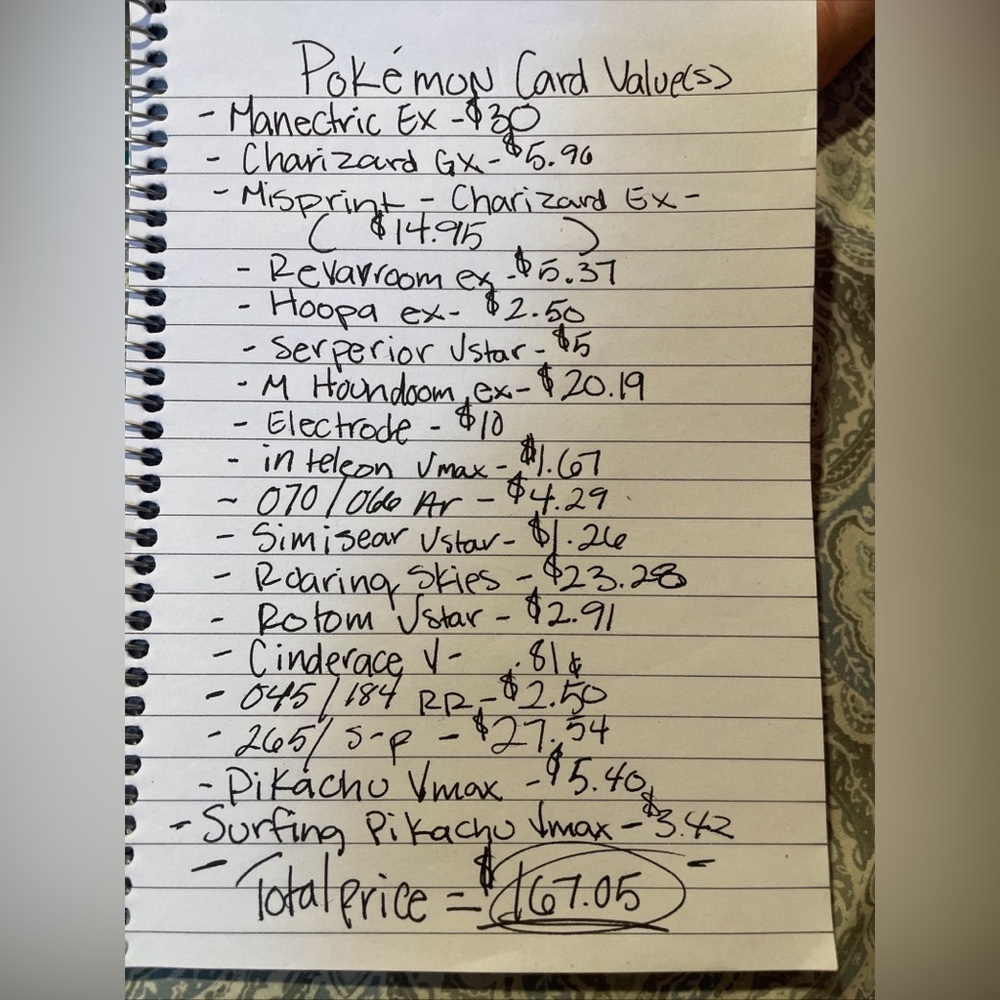 Pokémon Card Value(s)
- Manectric Ex - $30
- Charizard Gx - $5.96
- Misprint - Charizard Ex -
( $14.95 )
- Revavroom ex - $5.37
- Hoopa ex - $2.50
- Serperior Vstar - $5
- M Houndoom ex - $20.19
- Electrode - $10
- inteleon Vmax - $1.67
- 070/066 Ar - $4.29
- Simisear Vstar - $1.26
- Roaring Skies - $23.28
- Rotom Vstar - $2.91
- Cinderace V - .81¢
- 045/184 RR - $2.50
- 265/ S-p - $27.54
- Pikachu Vmax - $5.40
- Surfing Pikachu Vmax - $3.42
- Total price = $167.05 -